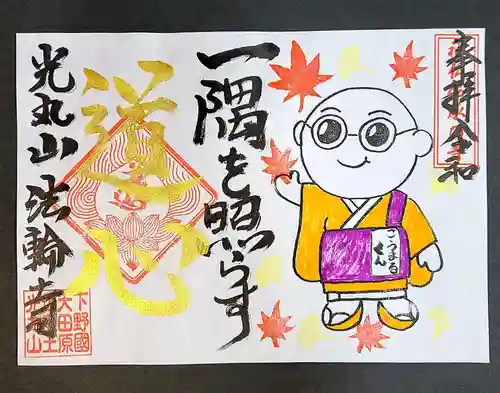 奉拝 令和
一隅を照らす
こうまる
くん
道心
光丸山 法輪寺
下野國
大田原